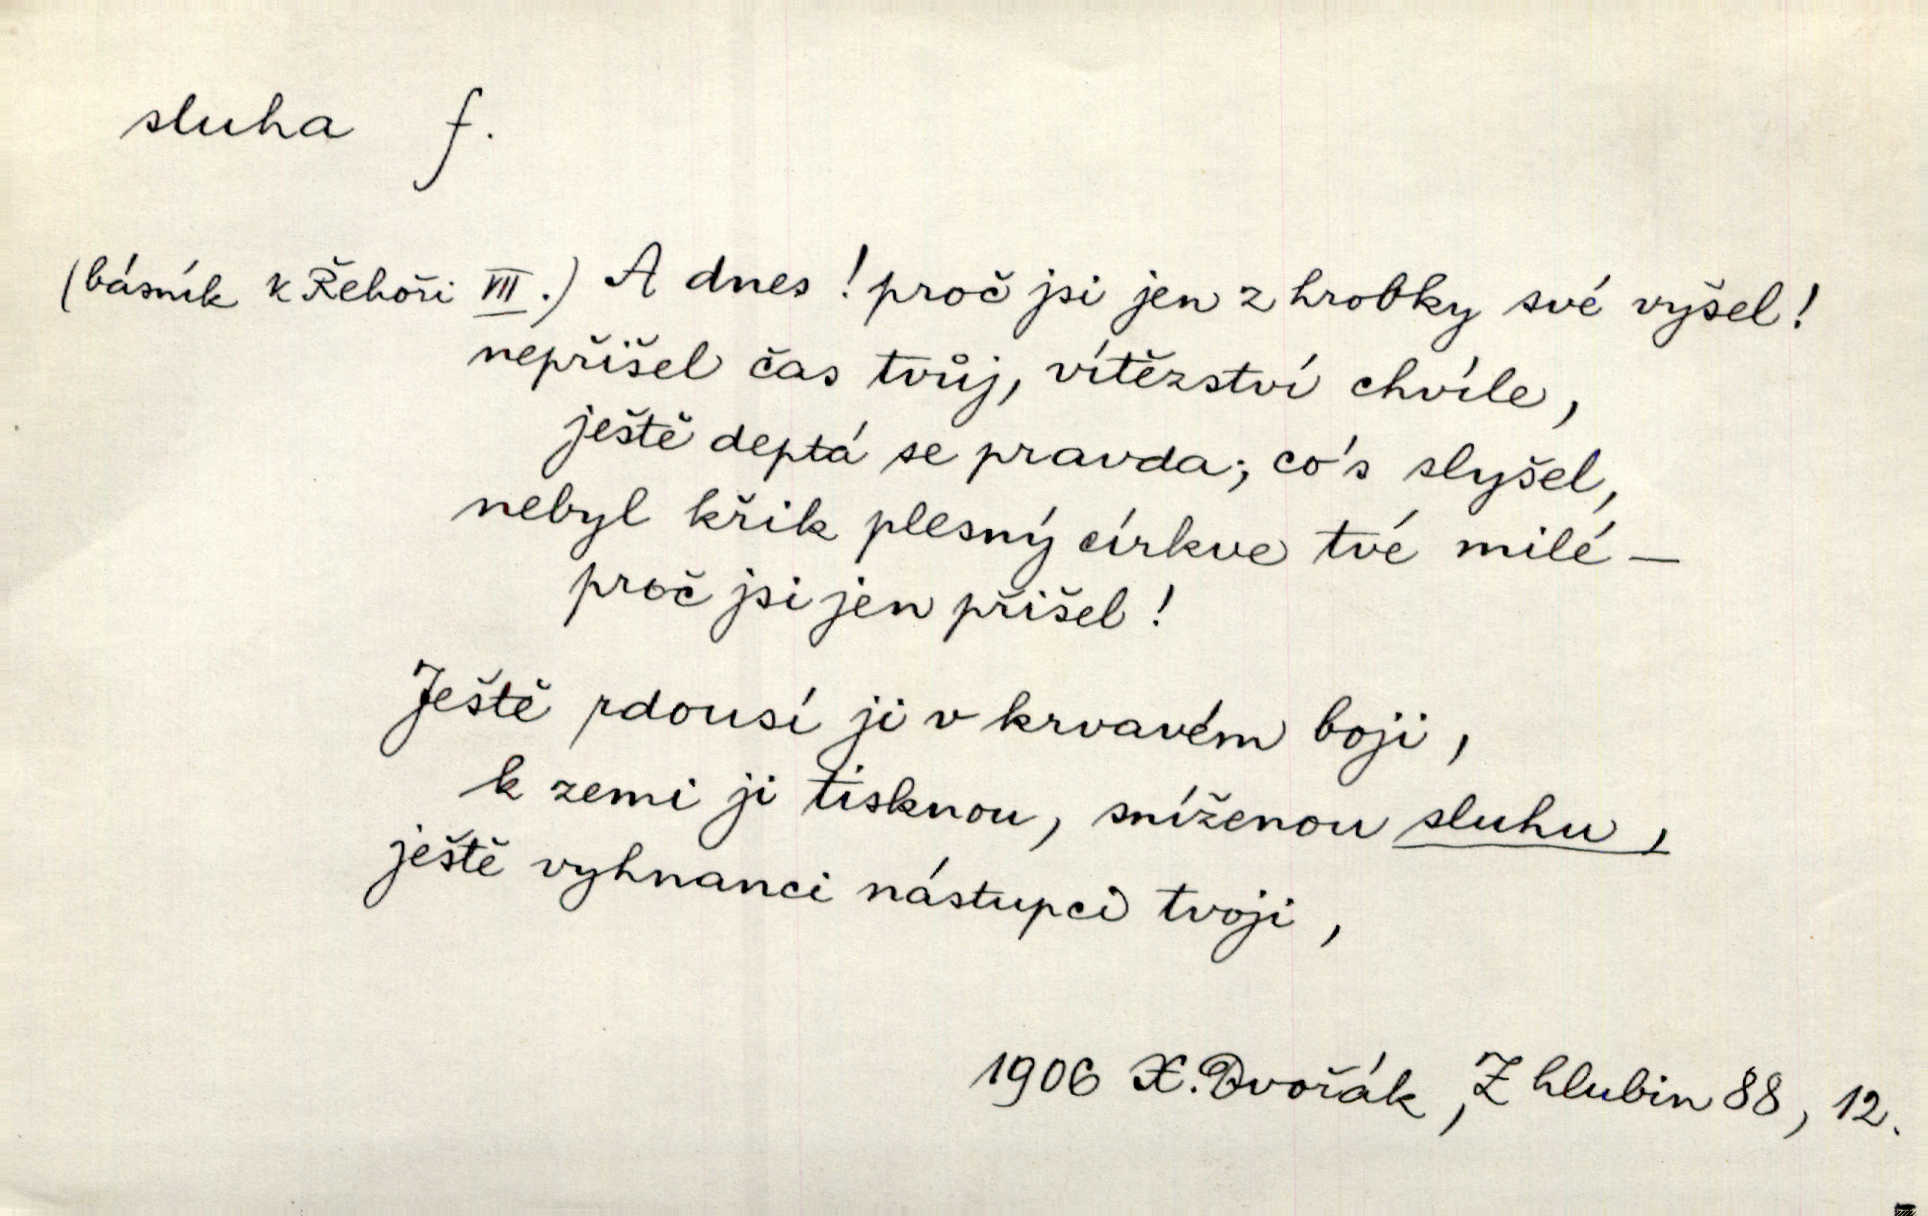 sluha f.
(básník k Řehoři VII.) A dnes! proč jsi jen z hrobky své vyšel!
nepřišel čas tvůj, vítězství chvíle,
ještě deptá se pravda; co's slyšel,
nebyl křik plesný církve tvé milé —
proč jsi jen přišel!
Ještě rdousí ji v krvavém boji,
k zemi ji tisknou, sníženou sluhu,
ještě vyhnanci nástupci tvoji,
1906 X. Dvořák, Z hlubin 88, 12.